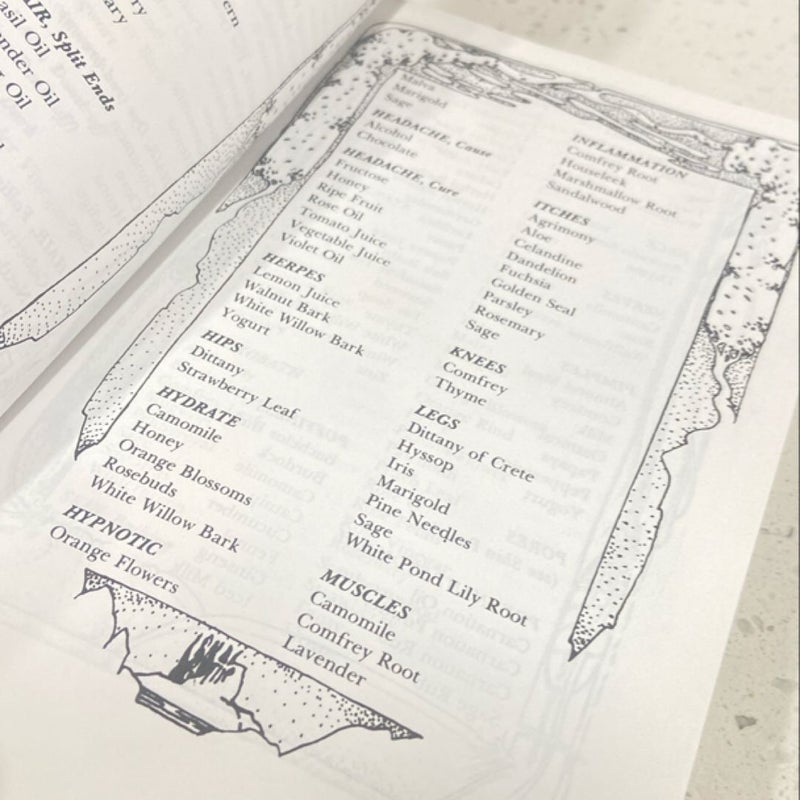 ern
ry
ary
AIR, Split Ends
asil Oil
nder Oil
Oil
Malva
Marigold
Sage
HEADACHE, Cause
Alcohol
Chocolate
HEADACHE, Cure
Fructose
Honey
Ripe Fruit
Rose Oil
Tomato Juice
Vegetable Juice
Violet Oil
HERPES
Lemon Juice
Walnut Bark
White Willow Bark
Yogurt
HIPS
Dittany
Strawberry Leaf
HYDRATE
Camomile
Honey
Orange Blossoms
Rosebuds
White Willow Bark
HYPNOTIC
Orange Flowers
INFLAMMATION
Comfrey Root
Houseleek
Marshmallow Root
Sandalwood
ITCHES
Agrimony
Aloe
Celandine
Dandelion
Fuchsia
Golden Seal
Parsley
Rosemary
Sage
KNEES
Comfrey
Thyme
LEGS
Dittany of Crete
Hyssop
Iris
Marigold
Pine Needles
Sage
White Pond Lily Root
MUSCLES
Camomile
Comfrey Root
Lavender